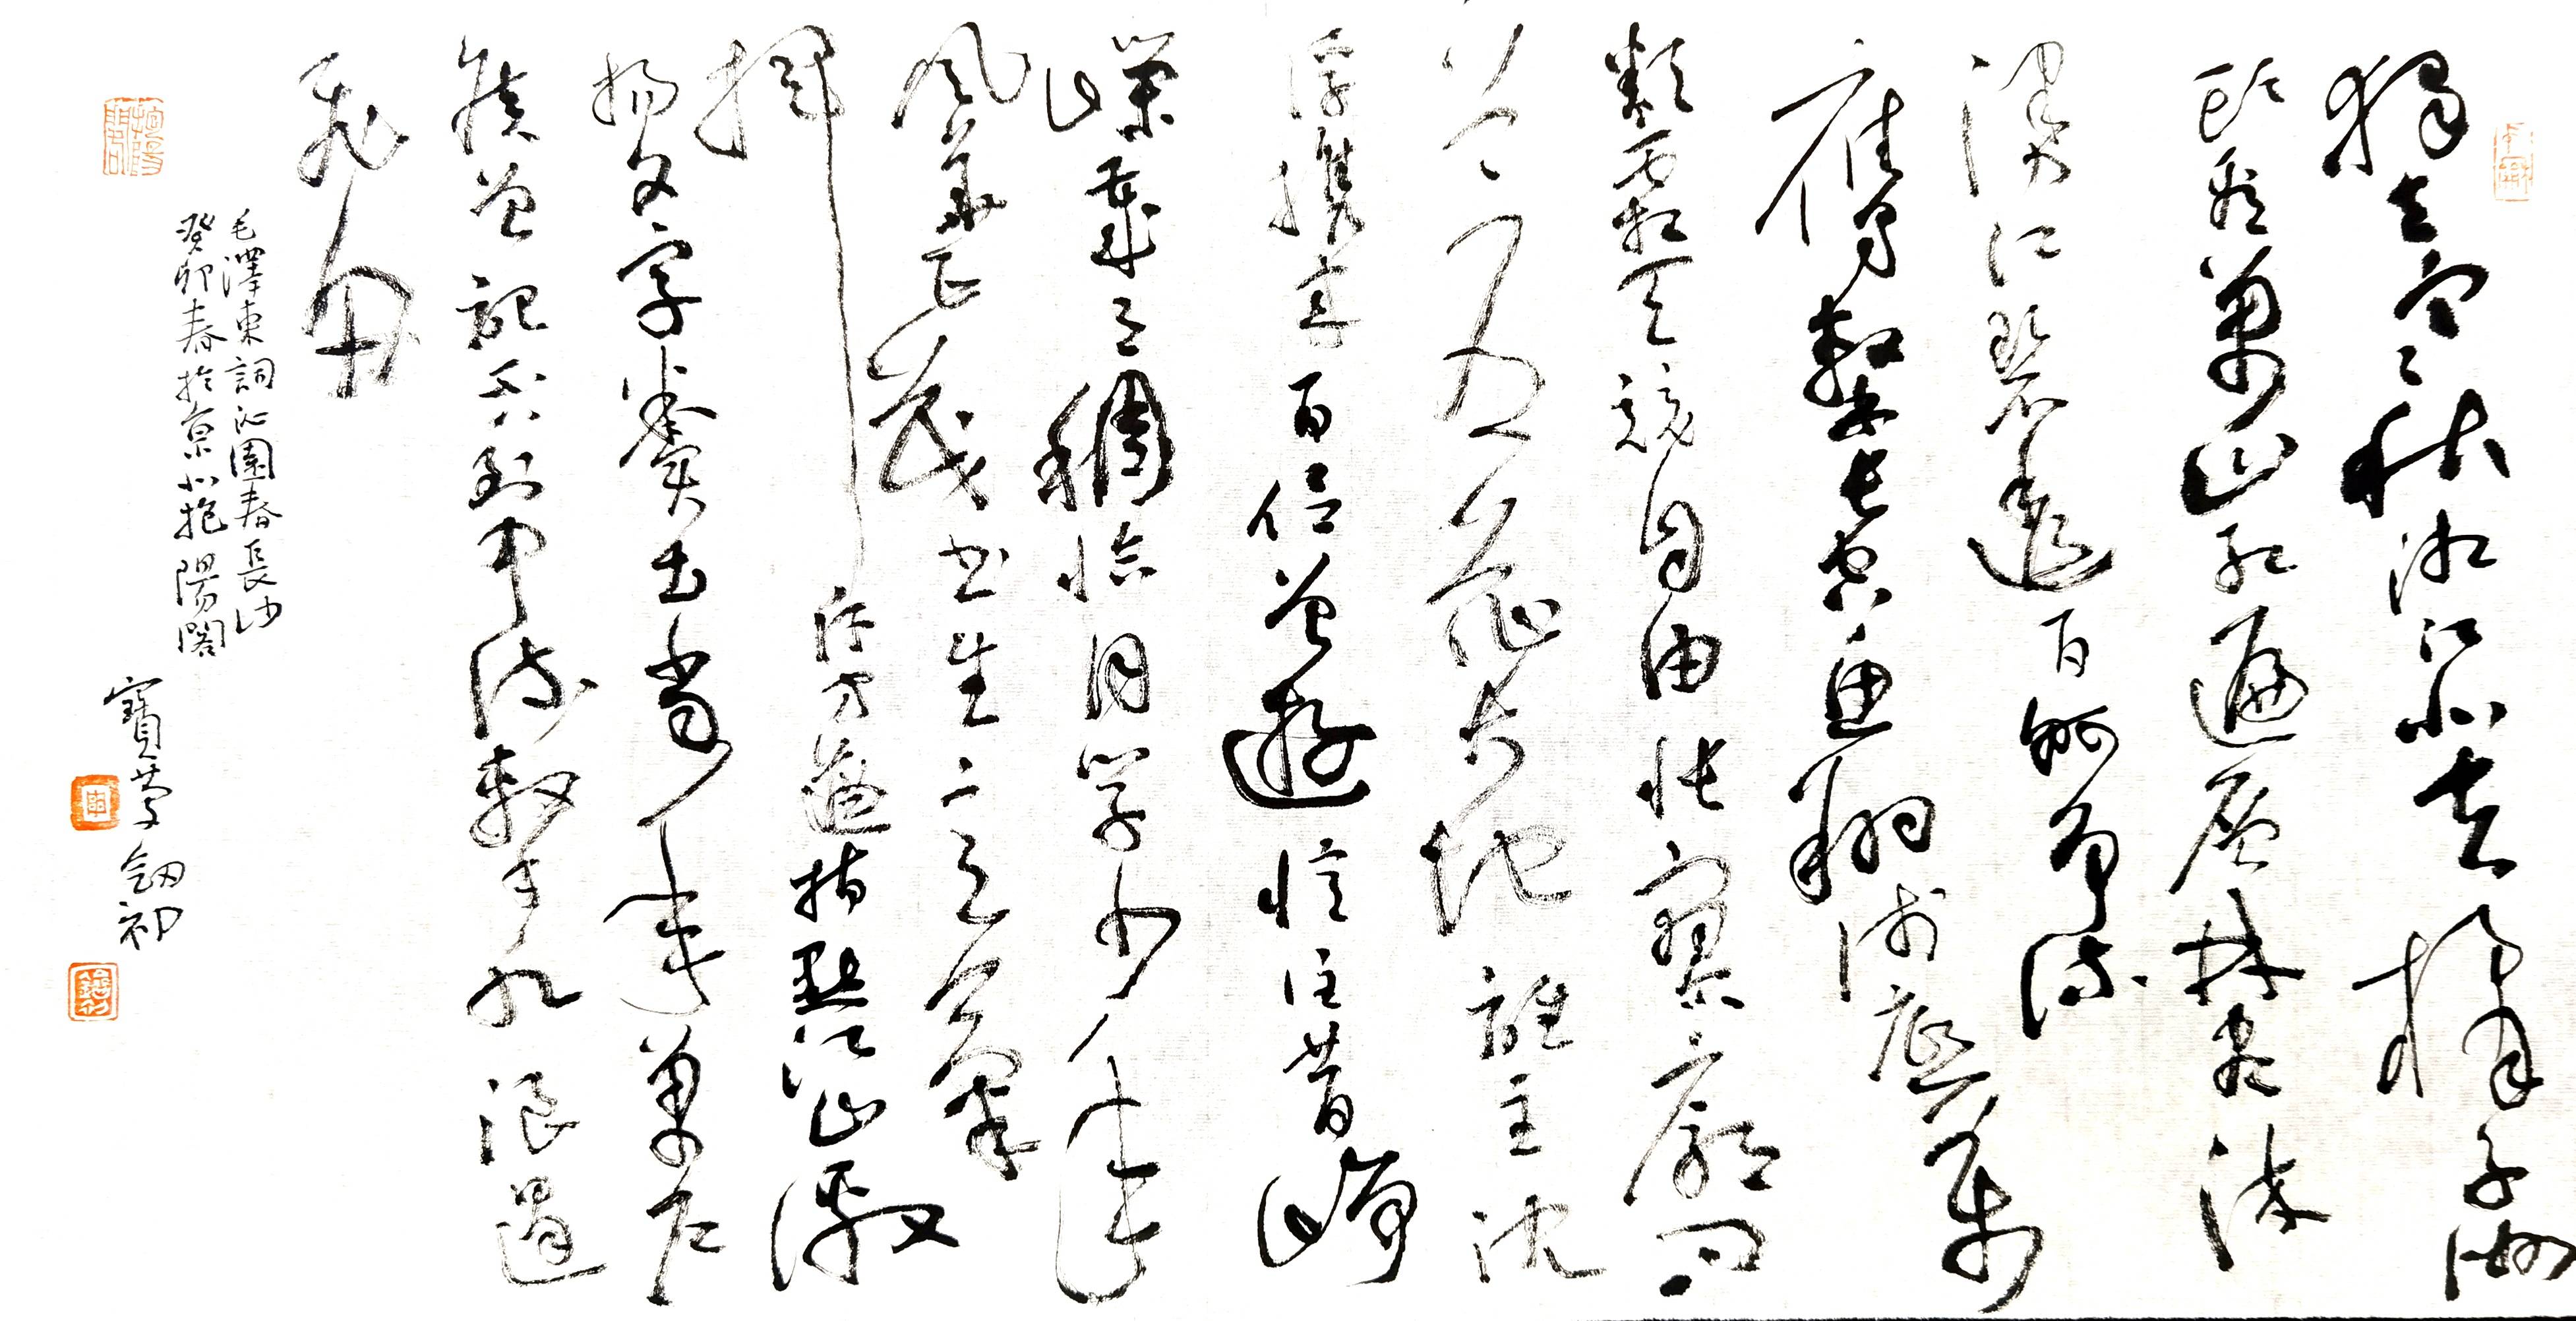 獨立寒秋湘江北去橘子洲
頭看萬山紅遍層林盡染
漫江碧透百舸爭流
鷹擊長空魚翔淺底萬
類霜天競自由悵寥廓問
蒼茫大地誰主沈
浮攜來百侶曾遊憶往昔崢
嶸歲月稠恰同學少年
風華正茂書生意氣
揮斥方遒指點江山激
揚文字糞土當年萬戶
侯曾記否到中流擊水浪遏
飛舟
毛澤東詞沁園春長沙
癸卯春於京北抱陽閣
寶 劍初
抱陽閣